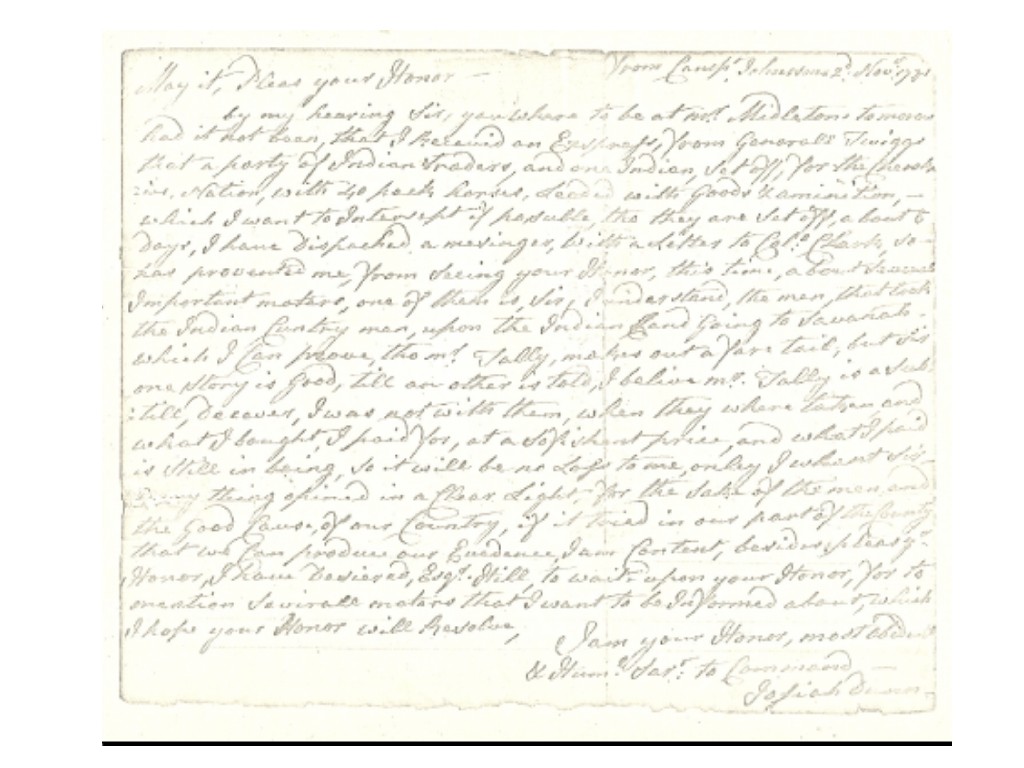 from Camp Johnsons 2d. Novr. 1781
May it, Pleas your Honor —
by my hearing Sir, you where to be at mr. Midletons tomorow
had it not been, that I Received an Express, from Generall Twiggs
that a party of Indian Traders, and one Indian, Set off, for the
Nation, with 40 pack horses, Loaded with Goods & amination, —
which I want to Intersept if possuble, tho they are Set off, about 6
days, I have Dispached a mesinger, with a Letter to Colo. Clark, so
has provented me, from Seeing your Honor, this time, about Several
Important maters, one of them is, Sir, I understand, the men, that took
the Indian Cuntry men, upon the Indian Land Going to Savanah.
which I Can prove, tho mr. Tally, makes out a fare tail, but Sir
one Story is Good, till an other is told, I belive mr. Tally is a Sub
till, Decever, I was not with them, when they where taken, and
what I bought, I paid for, at a Sofishant price, and what I paid
is Still in being, so it will be no Loss to me, onley I whant Sir
thing opined in a Clear Light, for the Sake of the men, and
the Good Cause, of our Country, if it tried in our part of the County
that we Can produce our Evedence, I am Content, besides, pleas yr.
Honor, I have Desiered, Esqr. Hill, to wait upon your Honor, for to
mention Severall maters that I want to be Informed about, which
I hope your Honor will Resolve,
I am your Honor, most obedient
& Humb. Sart. to Command —
Josiah Dunn